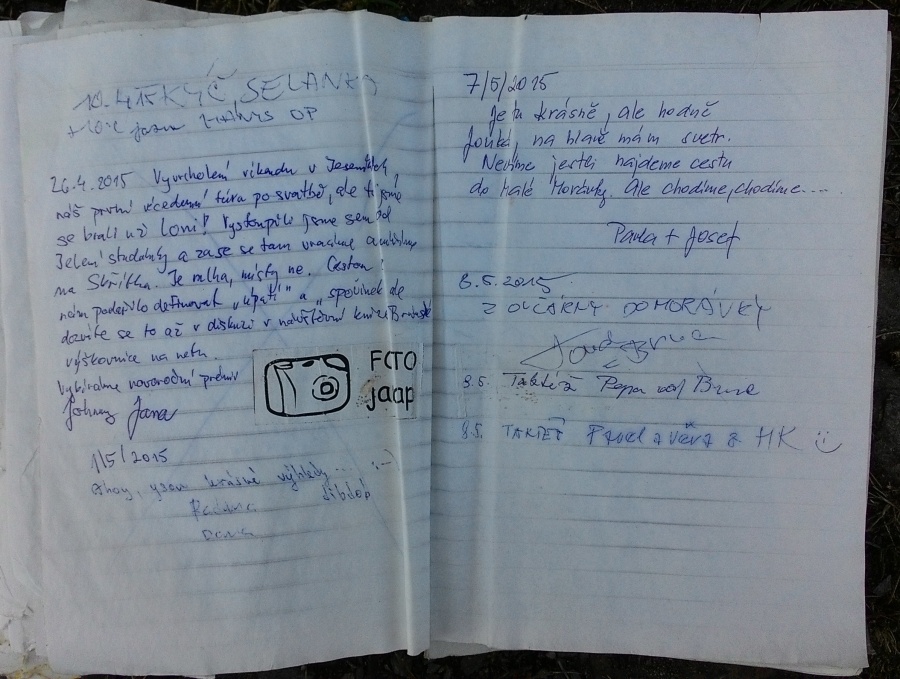 10.4.15 KÝČ SELANKA
OP
26.4.2015 Vyvrcholení víkendu v Jeseníkách,
náš první vícedenní túra po svatbě, ale ti jsme
se brali už loni! Vystoupili jsme sem od
Jelení studánky a zase se tam vracíme a
na Skřítka. Je mlha, místy ne. Cestou
nám podařilo definovat „úpatí" a „spočinek" ale
dozvíte se to až v diskuzi v návštěvní knize
výškovnice na netu.
Vybíráme novoroční prémii
Johnny Jana
FOTO
jaap
1/5/2015
Ahoy, jsou krásné výhledy... :-)
Radana
Dana
7/5/2015
Je tu krásně, ale hodně
fouká, na hlavě mám svetr.
Nevíme jestli najdeme cestu
do Malé Morávky. Ale chodíme, chodíme....
Pavla + Josef
8.5.2015
Z OVČÁRNY DO MORÁVKY
8.5. Taktéž Pepa od Brna
8.5. TAKTÉŽ Pavel a Věra z HK :)